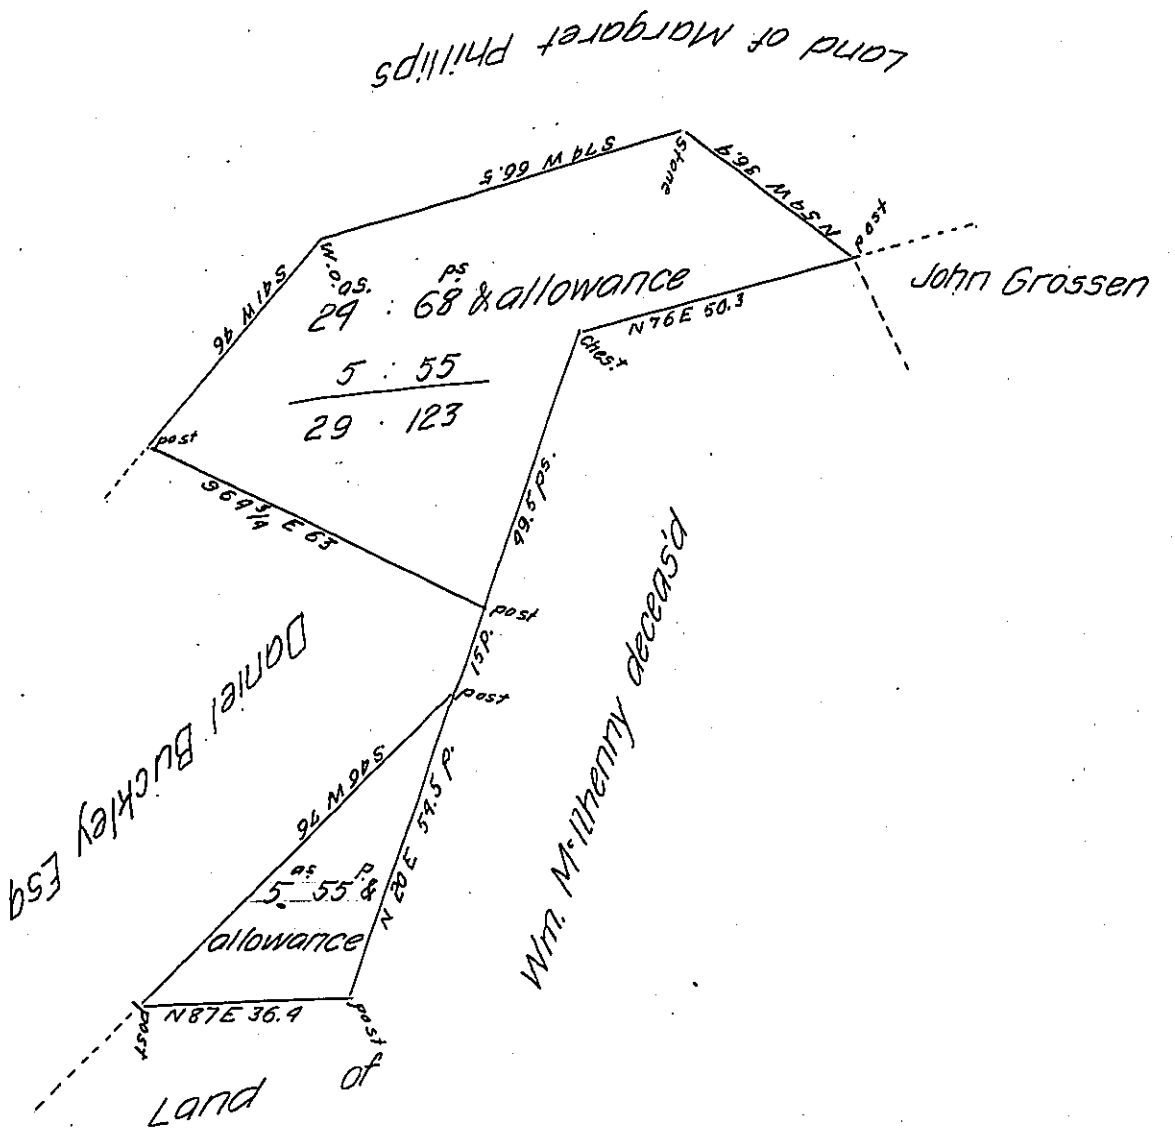 Land of Margaret Phillips
S74 W 66.5
stone
N 54 W 36.4
post
John Grossen
w.o.
as. ps.
29 : 68 & allowance
5 : 55
29 . 123
N 76 E 50.3
chest
S41 W 46
post
S 64 3/4 E 63
49.5 ps.
post
15 p.
post
Daniel Buckley Esq
Wm. McIlhenny deceas'd
S46 W 76
N 20 E 54.5 p.
as. p.
5. 55 &
allowance
post
N87E 36.4
post
Land of